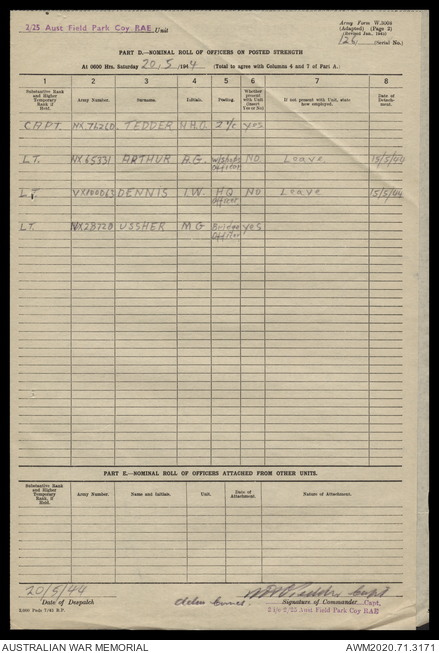 2/25 Aust Field Park Coy RAE Unit
Army Form W.3008
(Adapted) (Page 2)
(Revised Jan., 1943)
(Serial No.)
PART D.—NOMINAL ROLL OF OFFICERS ON POSTED STRENGTH
At 0600 Hrs. Saturday 20.5.1944 (Total to agree with Columns 4 and 7 of Part A.)
1 2 3 4 5 6 7 8
Substantive Rank and Higher Temporary Rank if Held.
Army Number.
Surname.
Initials.
Posting.
Whether present with Unit (Insert Yes or No)
If not present with Unit, state how employed.
Date of Detachment.
CAPT. TEDDER 2 i/c yes
LT. NX65331 ARTHUR A.G. Officer NO Leave 15/5/44
LT. DENNIS I.W. HQ Officer NO Leave 15/5/44
LT. USSHER M G Bridge Officer yes
PART E.—NOMINAL ROLL OF OFFICERS ATTACHED FROM OTHER UNITS.
Substantive Rank and Higher Temporary Rank, if Held.
Army Number.
Name and Initials.
Unit.
Date of Attachment.
Nature of Attachment.
20/5/44
Date of Despatch
Capt
Signature of Commander Capt.
2/25 Aust Field Park Coy RAE
AUSTRALIAN WAR MEMORIAL
AWM2020.71.3171